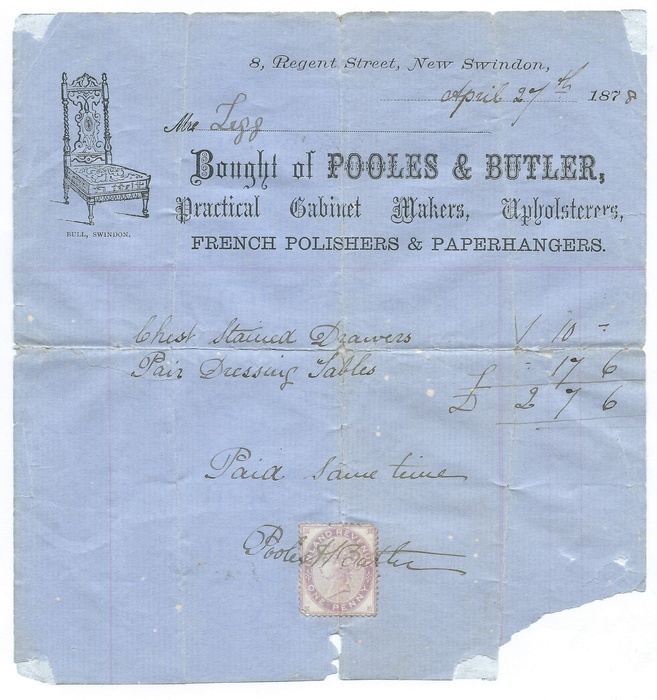 8, Regent Street, New Swindon,
April 27th 1878
Mrs Legg
Bought of POOLES & BUTLER,
Practical Cabinet Makers, Upholsterers,
BULL, SWINDON.
FRENCH POLISHERS & PAPERHANGERS.
Chest Stained Drawers 1 10 -
Pair Dressing Tables - 17 6
£ 2 7 6
Paid same time
Pooles & Butler
INLAND REVENUE
ONE PENNY